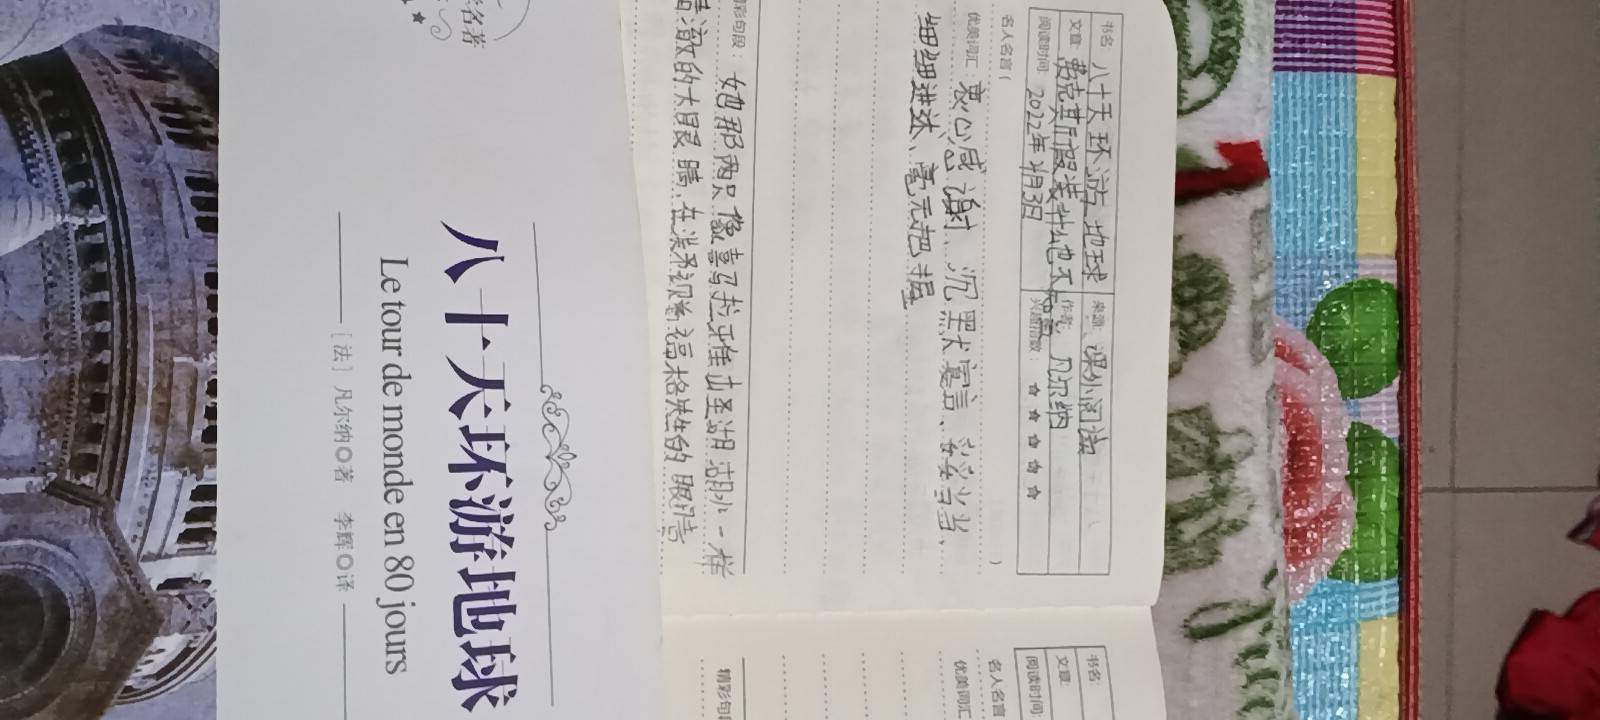 名著
八十天环游地球
Le tour de monde en 80 jours
[法] 凡尔纳◎著 李辉◎译
书名: 八十天环游地球 来源: 课外阅读
文章: 费克其斤假装什么也不 作者: 凡尔纳
阅读时间: 2022年4月3日 兴趣指数 ☆☆☆☆☆
名人名言( )
优美词汇: 衷心感谢、沉黑犬寡言、妥妥当当、
细细进述、毫无把握
精彩句段: 她那两只像喜马拉雅山圣湖湖水一样
清澈的大眼睛,在凝视着福格先生的眼睛
书名:
文章:
阅读时间:
名人名言
优美词汇
精彩句段